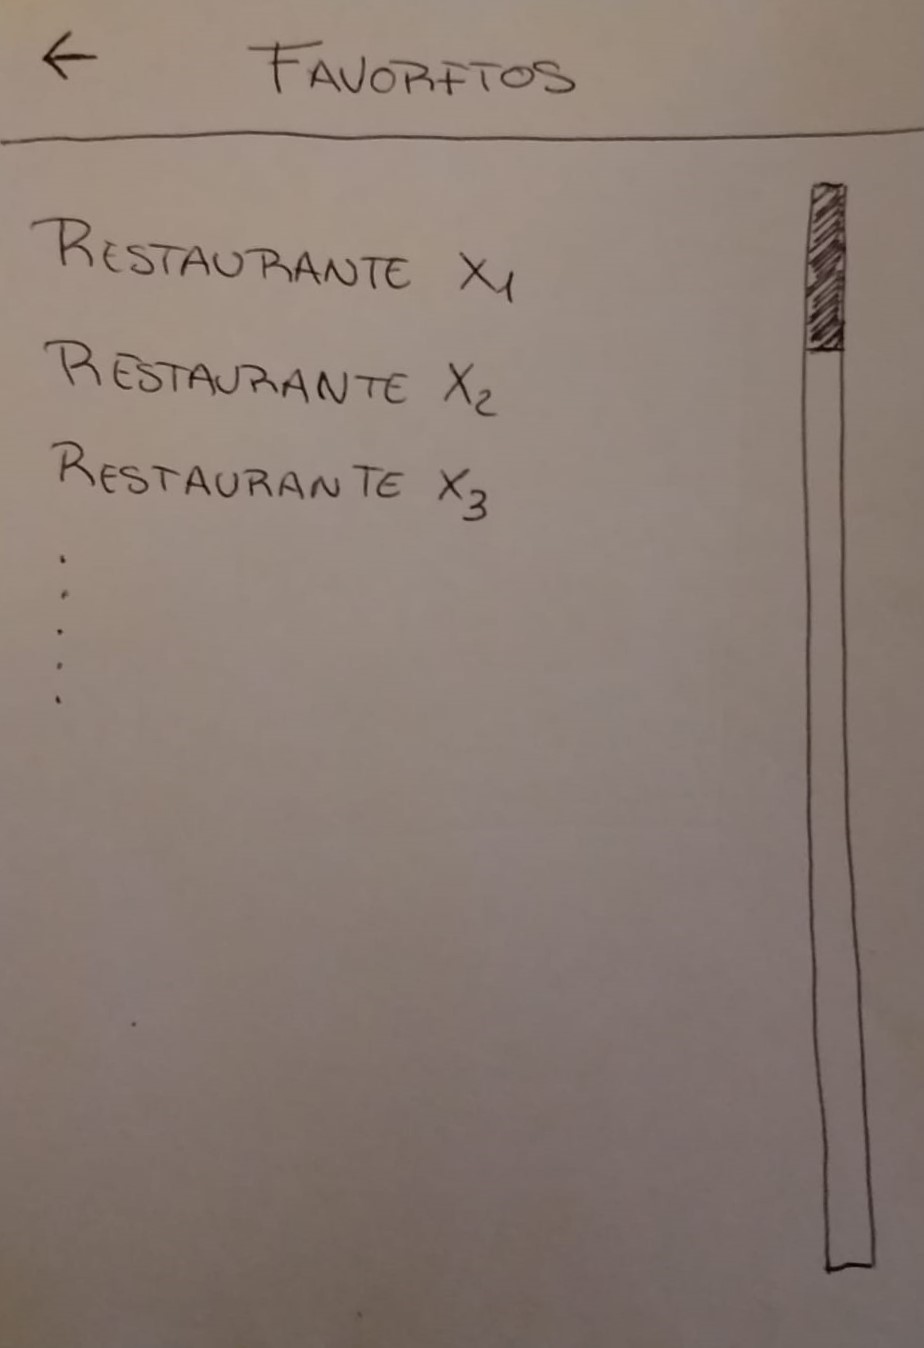 ← FAVORITOS
RESTAURANTE X1
RESTAURANTE X2
RESTAURANTE X3
.
.
.
.
.